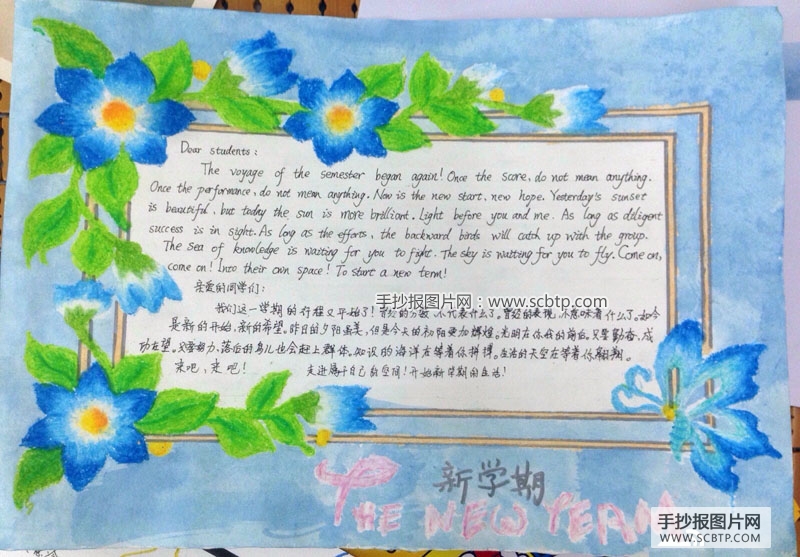 Dear students:
The voyage of the semester began again! Once the score, do not mean anything.
Once the performance, do not mean anything. Now is the new start, new hope. Yesterday's sunset
is beautiful, but today the sun is more brilliant. Light before you and me. As long as diligent
success is in sight. As long as the efforts, the backward birds will catch up with the group.
The sea of knowledge is waiting for you to fight. The sky is waitting for you to fly. Come on,
come on! Into their own space! To start a new term!
亲爱的同学们:
我们这一学期的行程又开始了! 曾经的分数,不代表什么了。曾经的表现,不意味着什么了。如今
手抄报图片网:www.scbtp.com
是新的开始,新的希望。昨日的夕阳固美,但是今天的初阳更加辉煌。光明在你我的前面。只要勤奋,成
功在望。只要努力,落后的鸟儿也会赶上群体。知识的海洋在等着你拼搏。生活的天空在等着你翱翔。
来吧,来吧! 走进属于自己的空间!开始新学期的生活!
新学期
THE NEW YEAR
手抄报图片网
WWW.SCBTP.COM